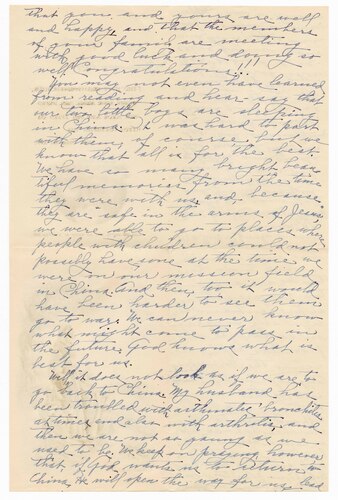 that you and yours are well
and happy and that the members
of your family are meeting
with good luck and doing so
well. Congratulations!!!
You may not even have learned
from reading and hear-say that
our two little boys are sleeping
in China. It was hard to part
with them, of course, but we
know that all is for the best.
We have so many bright beau-
tiful memories from the time
they were with us and, because
they are safe in the arms of Jesus
we were able to go to places where
people with children could not
possibly have gone at the time we
were on our mission field
in China. And then, too it would
have been harder to see them
go to war. We can never know
what might come to pass in
the future. God knows what is
best for us.
Well, it does not look as if we are to
go back to China. My husband has
been troubled with asthmatic bronchitis
at times and also with arthritis, and
then we are not so young as we
used to be. We keep on praying however
that if God wants us to return to
China, He will open the way for us, lead